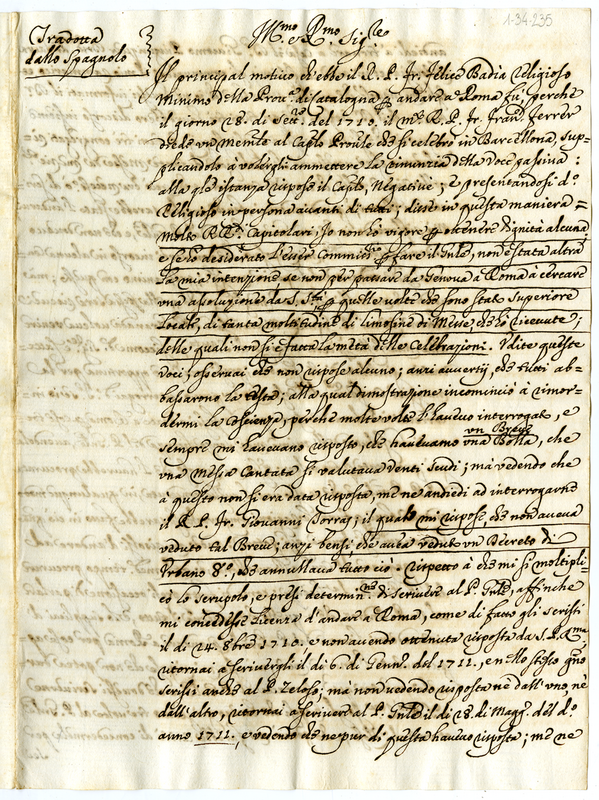 1-34-235
Tradotta
dallo Spagnolo
Ill.mo e R.mo Sig.re
Il principal motivo che ebbe il R. P. Fr. Felice Badia Religioso
Minimo della Prou.a di Catalogna per andare a Roma fù, perche
il giorno 28. di Sett.re del 1710. il m.o R. P. Fr. Fran.co Ferrer
diede un Memle al Caplo Proule che si celebrò in Barcellona, sup-
plicandolo à volergli ammettere la rinunzia della voce passiva:
alla qle istanza rispose il Caplo, Negative; e presentandosi d.o
Religioso in persona avanti di tutti; disse in questa maniera =
Molto RR.di Capitolari, Io non hò vigore per ottenere dignità alcuna
e se hò desiderato l'esser Commiss.rio per fare il Gnle, non è stata altra
la mia intenzione se non per passare da Genova à Roma à cercare
una assoluzione da S. S.tà per quelle volte che sono stato Superiore
Locale, di tanta moltitudine di limosine di Messe, che hò ricevute;
delle quali non si è fatta la metà delle Celebrazioni. Udite queste
voci; osservai che non rispose alcuno; anzi avvertij che tutti ab-
bassarono la testa; alla qual dimostrazione incominciò à rimor-
dermi la Coscienza, perche molte volte l'havevo interrogato, e
sempre mi havevano risposto, che havevamo una Bolla, che
un Breve
una Messa Cantata si valutava venti scudi; mà vedendo che
à questo non si era data risposta, me ne andiedi ad interrogarne
il R. P. Fr. Giovanni Torras; il quale mi rispose, che non aveva
veduto tal Breve; anzi bensi che avea veduto un Decreto di
Urbano 8.o, che annullava tutto ciò. rispetto à che mi si moltipli-
cò lo scrupolo, e presi determi.ne di scrivere al P. Gnle, affinche
mi concedesse licenza d'andare à Roma, come di fatto gli scrissi
il di 24. 8bre 1710. e non avendo ottenuta risposta da S. P. R.ma
ritornai à scrivergli il di 6. di Genn.o del 1711., e nello stesso gno
scrissi anche al P. Zeloso; mà non vedendo risposta nè dall'uno, nè
dall'altro, ritornai à scrivere al P. Gnle il di 28. di Magg.o del d.o
anno 1711., e vedendo che ne pur di questa havevo risposta; me ne